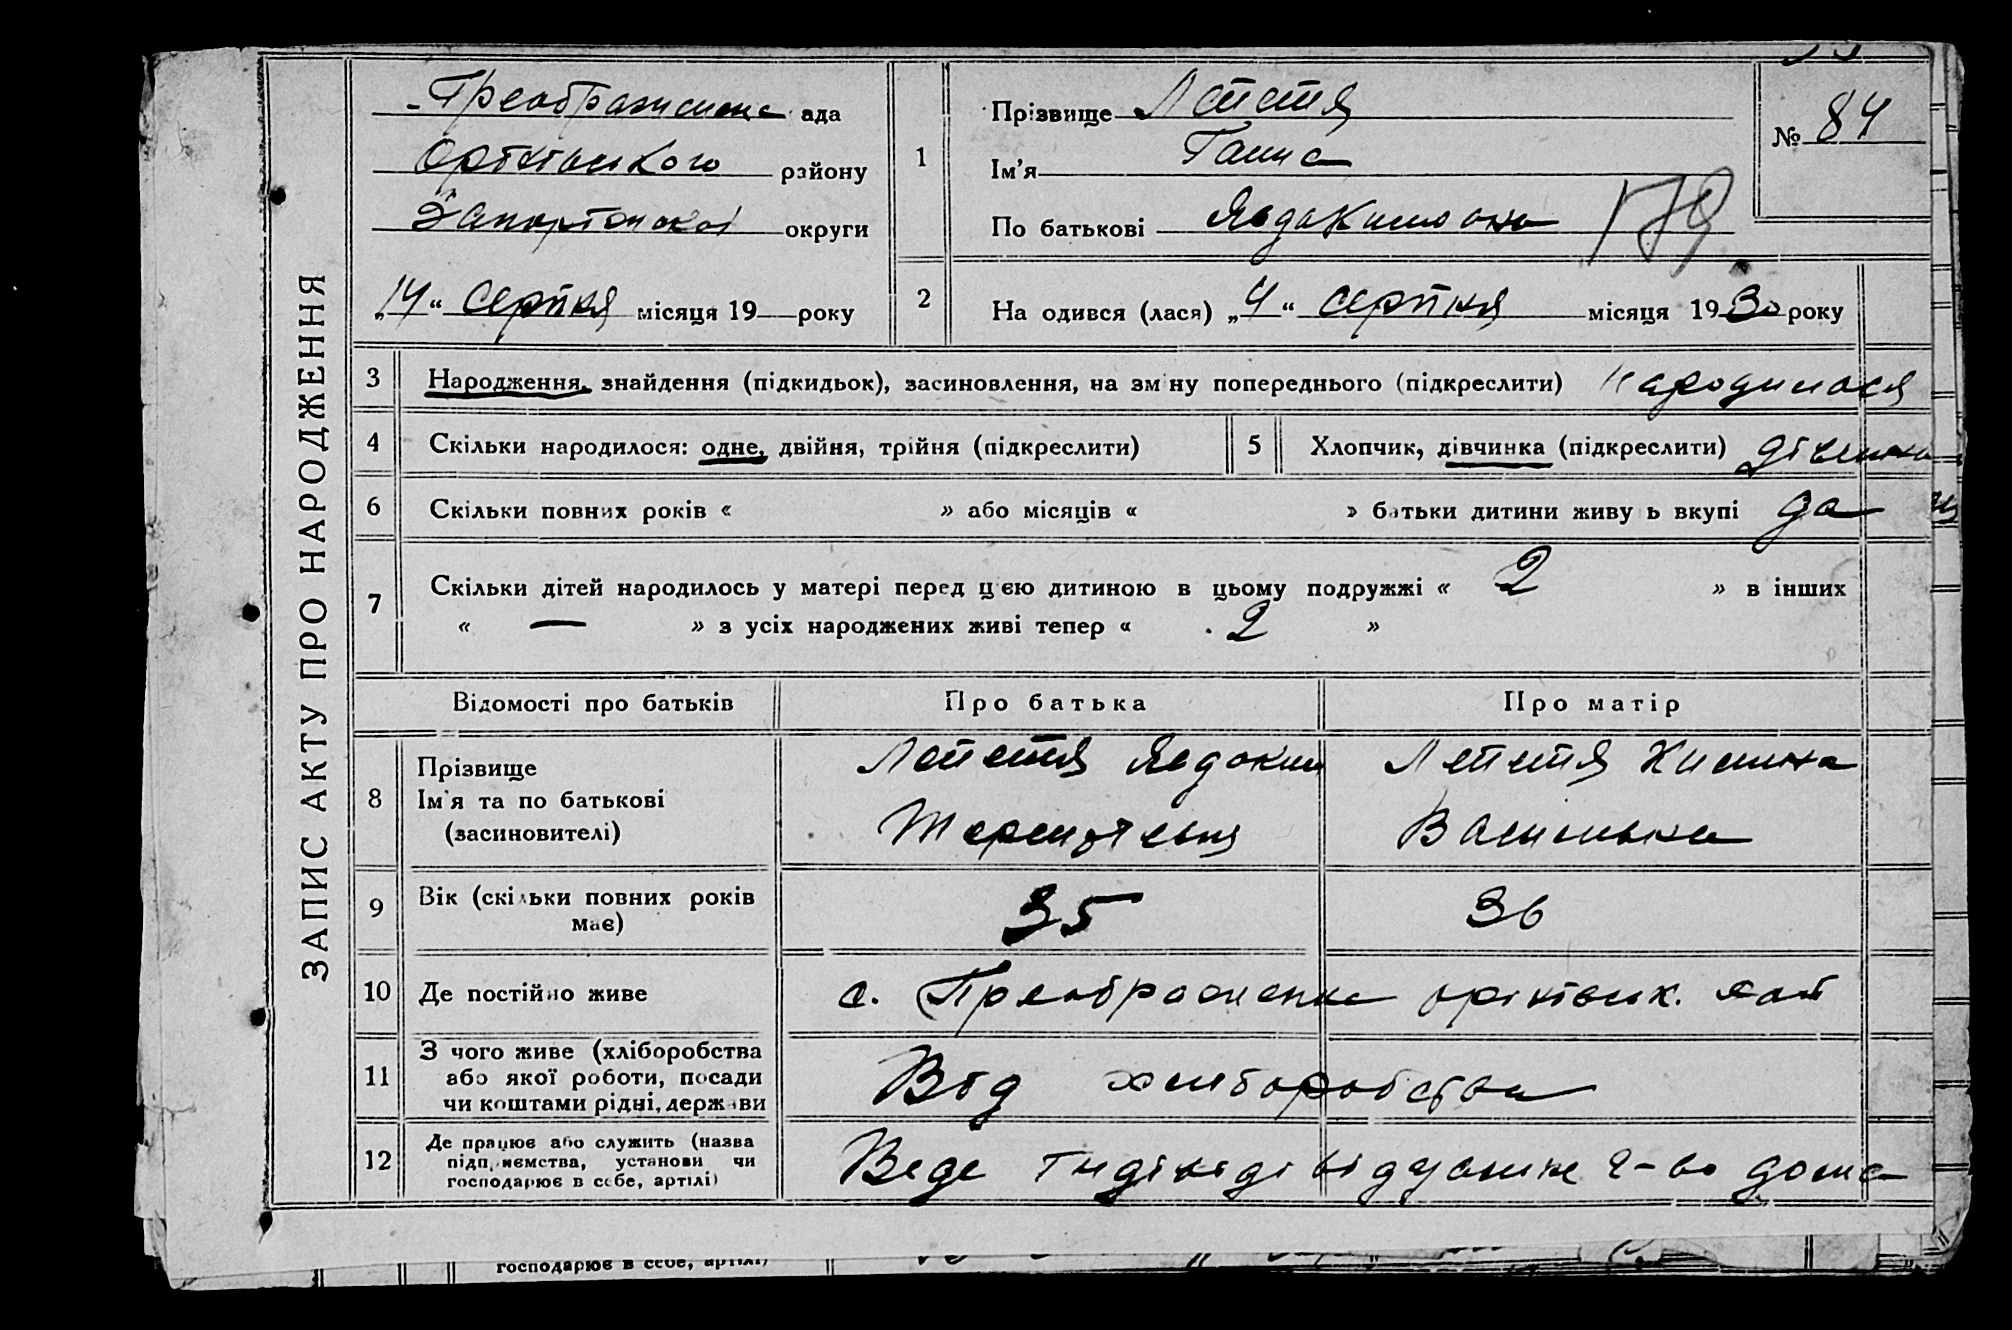 ЗАПИС АКТУ ПРО НАРОДЖЕННЯ
Преображенська ада
Оріхівського району
Запорізької округи
„14“ серпня місяця 19 року
1
Прізвище Лепетя
Ім'я Ганна
По батькові Явдокимовна
179
№ 84
2
На одився (лася) „4“ серпня місяця 1930 року
3 Народження, знайдення (підкидьок), засиновлення, на зм ну попереднього (підкреслити) народилася
4 Скільки народилося: одне, двійня, трійня (підкреслити)
5 Хлопчик, дівчинка (підкреслити) дівчинка
6 Скільки повних років « » або місяців « » батьки дитини живу ь вкупі да
7 Скільки дітей народилось у матері перед цею дитиною в цьому подружжі « 2 » в інших
« — » з усіх народжених живі тепер « 2 »
Відомості про батьків Про батька Про матір
8 Прізвище
Ім'я та по батькові
(засиновителі)
Лепетя Явдоким
Лепетя
Васильвна
9 Вік (скільки повних років
має)
35 36
10 Де постійно живе с. Преображенка оріхівськ.
11 З чого живе (хліборобства
або якої роботи, посади
чи коштами рідні, держави
Від хліборобства
12 Де працює або служить (назва
підприємства, установи чи
господарює в себе, артілі)
Веде дома
господарює в себе, артілі)